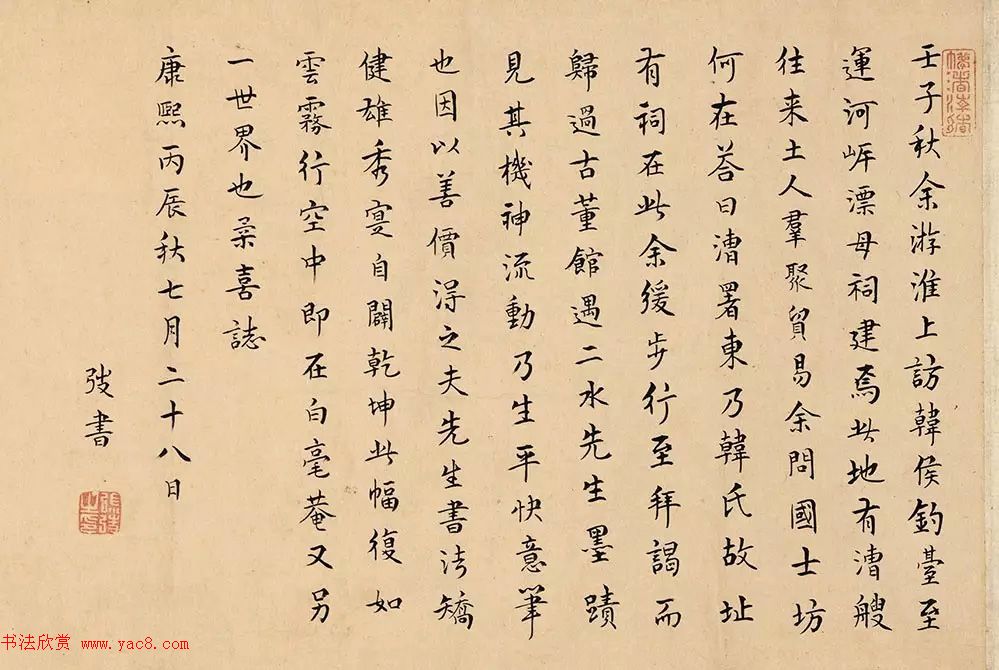 壬子秋余游淮上訪韓侯釣臺至
運河岸漂母祠建焉此地有漕艘
往来土人羣聚貿易余問國士坊
何在荅曰漕署東乃韓氏故址
有祠在此余緩步行至拜謁而
歸過古董館遇二水先生墨蹟
見其機神流動乃生平快意筆
也因以善價淂之夫先生書法矯
健雄秀寔自闢乾坤此幅復如
雲霧行空中即在白毫菴又另
一世界也喜誌
康熙丙辰秋七月二十八日
弢書
书法欣赏 www.yac8.com